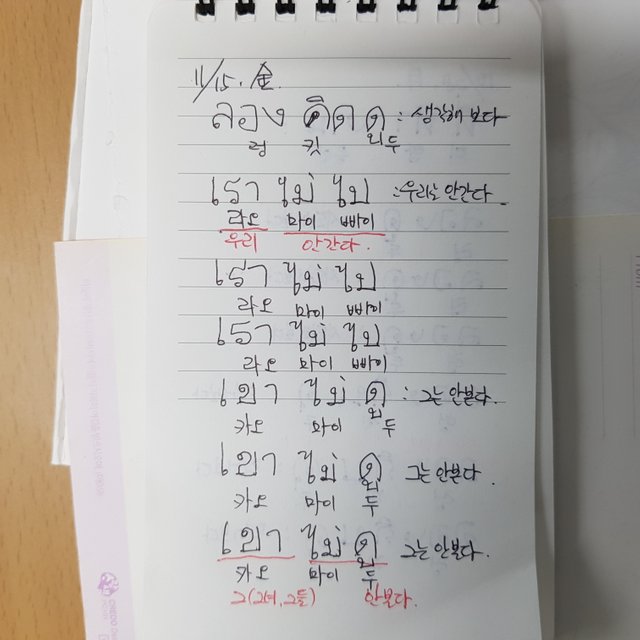 11/15. 金
ลอง คิด ดู : 생각해 보다
렁 킷 두
เรา ไม่ ไป : 우리는 안간다.
라오 마이 빠이
우리 안간다.
เรา ไม่ ไป
라오 마이 빠이
เรา ไม่ ไป
라오 마이 빠이
เขา ไม่ ดู : 그는 안본다.
카오 마이 두
เขา ไม่ ดู 그는 안본다.
카오 마이 두
เขา ไม่ ดู 그는 안본다.
카오 마이 두
그(그녀, 그들) 안본다.